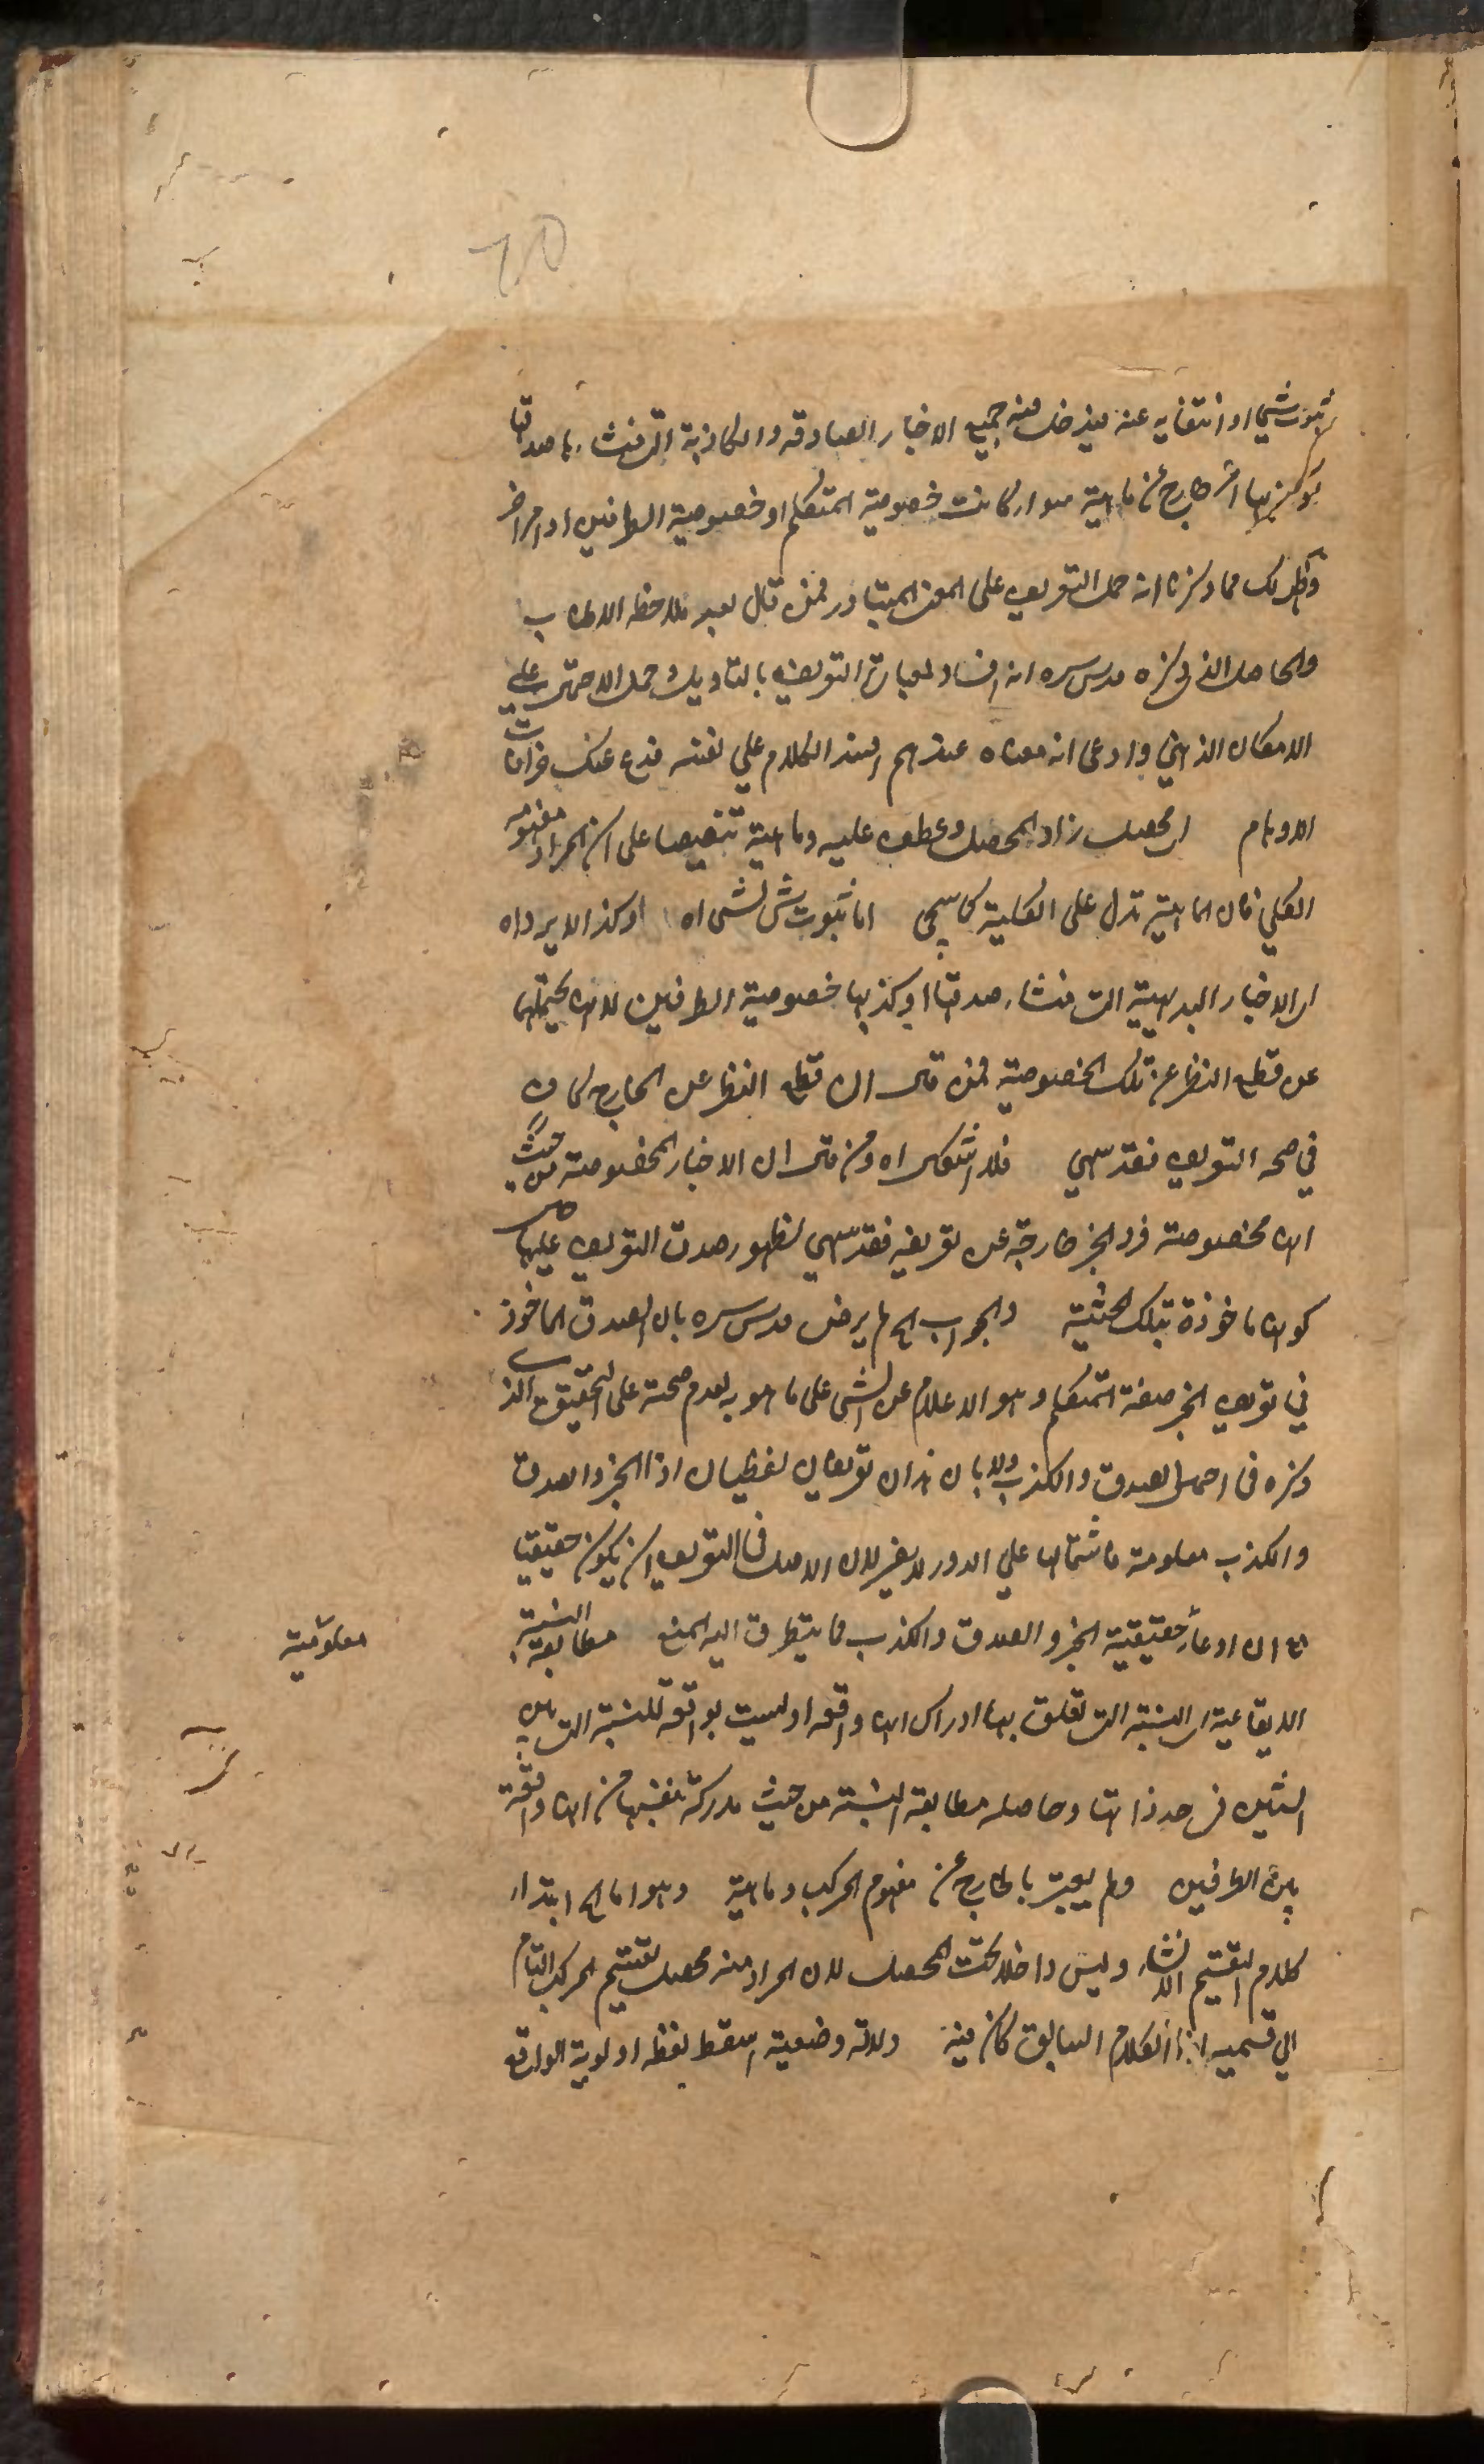 ثبوت شي او انتفايه عنه فيدخل فيه جميع الاخبار الصادقه والكاذبة التي منشاء صدقها
او كذبها امر خارج عن ماهية سواء كانت خصوصية المتكلم او خصوصية الطرفين او امر اخر
وظهر لك مما ذكرنا انه حمل التعريف على المعنى المتبادر فمن قال بعد ملاحظه
والحاصل الذي ذكره قدس سره انه افساد لعبارة التعريف بالتاويل وحمل الاحتمال على
الامكان الذهني وادعى انه معناه عندهم افسد الكلام علي نفسه فدع عنك خرافات
الاوهام اي محصل زاد المحصل وعطف عليه وماهية تنصيصا على ان المراد مفهومه
الكلي فان الماهية تدل على الكلية كما سيجئ اما ثبوت شئ لشئ اه او كذا لا يرد اه
اي الاخبار البديهية التي منشاء صدقها او كذبها خصوصية الطرفين لانها يحتملهما
عن قطع النظر عن تلك الخصوصية فمن قال ان قطع النظر عن الخارج كاف
في صحه التعريف فقد سهي فلا اشكال اه ومن قال ان الاخبار المخصوصة من حيث
انها مخصوصة فرد الخبر خارجة عن تعريفه فقد سهي لظهور صدق التعريف عليها حال
كونها ماخوذة بتلك الحيثية والجواب الخ لم يرض قدس سره بان الصدق الماخوذ
في تعريف الخبر صفة المتكلم وهو الاعلام عن الشئ على ما هو به لعدم صحته على التحقيق الذي
ذكره في احتمال الصدق والكذب ولا بان هذان تعريفان لفظيان اذا الخبر والصدق
والكذب معلومة فاشتمالها علي الدور لا يضر لان الاصل في التعريف ان يكون حقيقيا
مع ان ادعاء حقيقية الخبر والصدق والكذب مما يتطرق اليه المنع مطابقة النسبة
معلومية
الايقاعية اي النسبة التي تعلق بها ادراك انها واقعه او ليست بواقعة للنسبة التي بين
الشئين في حد ذاتها وحاصله مطابقة النسبة من حيث مدركة نفسها من انها واقعة
بين الطرفين ولم يعتبر بالخارج عن مفهوم المركب وماهية وهو اما الخ ابتداء
كلام لتقسيم الانشاء وليس داخلا تحت المحصل لان المراد منه محصل تقسيم المركب التام
الي قسميه اذا الكلام السابق كان فيه دلالة وضعية اسقط لفظه اولوية الواقع